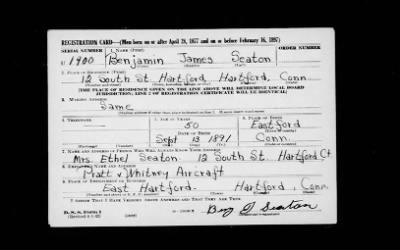 REGISTRATION CARD—(Men born on or after April 28, 1877 and on or before February 16, 1897)
SERIAL NUMBER 1. NAME (Print) ORDER NUMBER
U 1900 Benjamin James Seaton
(First) (Middle) (Last)
2. PLACE OF RESIDENCE (Print)
12 South St. Hartford, Hartford, Conn.
(Number and street) (Town, township, village, or city) (County) (State)
[THE PLACE OF RESIDENCE GIVEN ON THE LINE ABOVE WILL DETERMINE LOCAL BOARD
JURISDICTION; LINE 2 OF REGISTRATION CERTIFICATE WILL BE IDENTICAL]
3. MAILING ADDRESS
Same
4. TELEPHONE 5. AGE IN YEARS 6. PLACE OF BIRTH
50 Eastford
DATE OF BIRTH
Sept 13 1891 Conn.
7. NAME AND ADDRESS OF PERSON WHO WILL ALWAYS KNOW YOUR ADDRESS
Mrs. Ethel Seaton 12 South St. Hartford Ct
8. EMPLOYER'S NAME AND ADDRESS
Pratt & Whitney Aircraft
9. PLACE OF EMPLOYMENT OR BUSINESS
East Hartford - Hartford, Conn.
I AFFIRM THAT I HAVE VERIFIED ABOVE ANSWERS AND THAT THEY ARE TRUE.
D. S. S. Form 1
Benj J Seaton